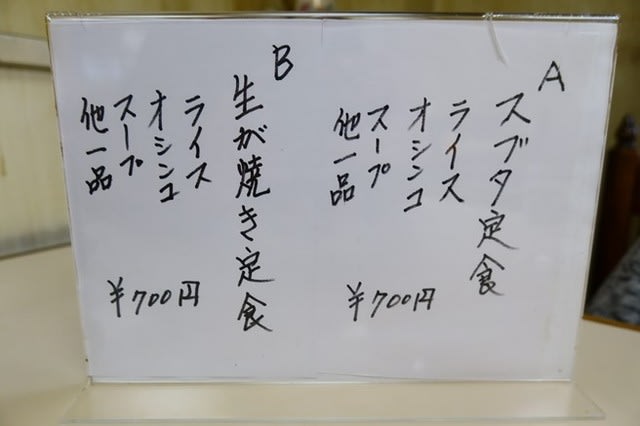 A
スブタ定食
ライス
オシンコ
スープ
他一品
¥700円
B
生が焼き定食
ライス
オシンコ
スープ
他一品
¥700円